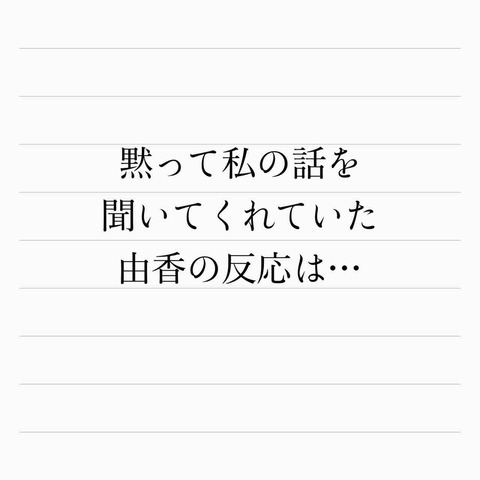 黙って私の話を
聞いてくれていた
由香の反応は…